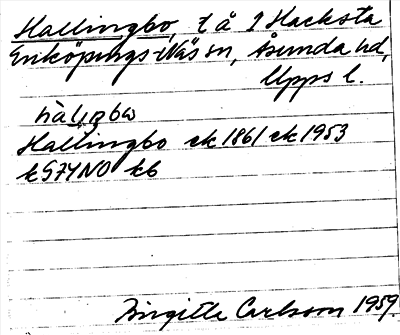 Hallingbo, t å 2 Hacksta
Enköpings-Näs sn, Åsunda hd,
Upps l.
hàlıŋbω
Hallingbo ek 1861 ek 1953
k S74NO k6
Birgitta Carlsson 1959.